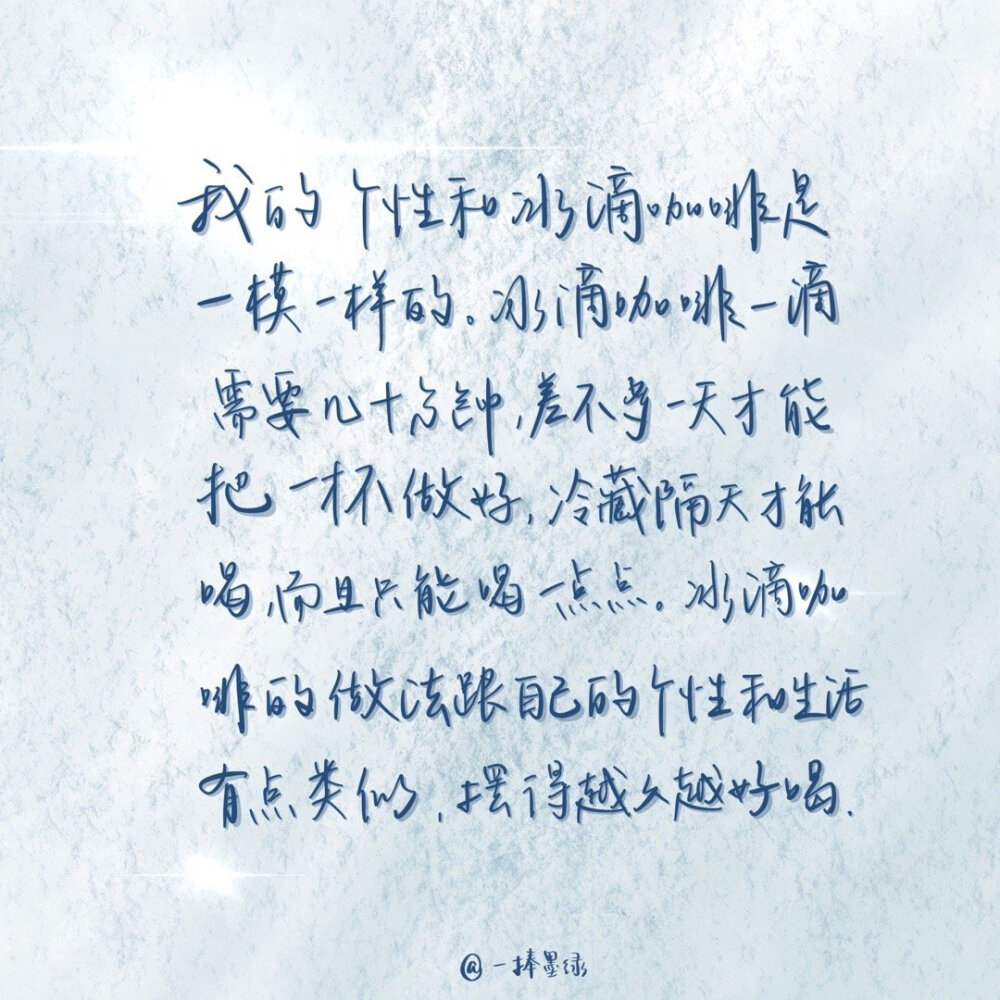 我的个性和冰滴咖啡是
一模一样的。冰滴咖啡一滴
需要几十分钟,差不多一天才能
把一杯做好,冷藏隔天才能
喝,而且只能喝一点点。冰滴咖
啡的做法跟自己的个性和生活
有点类似,摆得越久越好喝.
@一捧墨绿